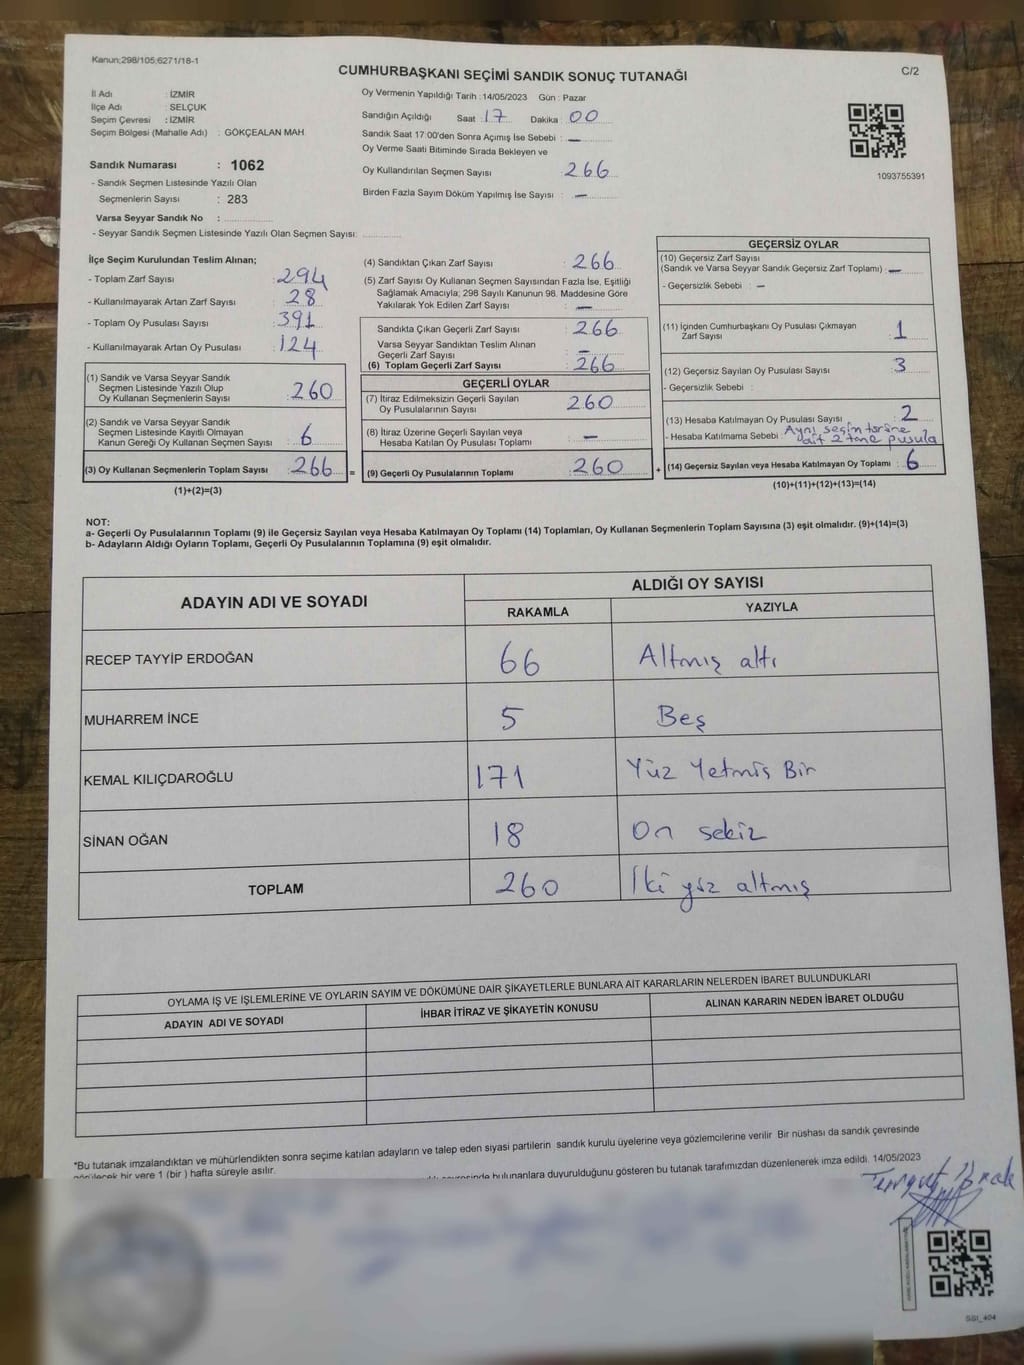 Kanun;298/105;6271/18-1
CUMHURBAŞKANI SEÇİMİ SANDIK SONUÇ TUTANAĞI
C/2
İl Adı : İZMİR
İlçe Adı : SELÇUK
Seçim Çevresi : İZMİR
Seçim Bölgesi (Mahalle Adı) : GÖKÇEALAN MAH.
Sandık Numarası : 1062
- Sandık Seçmen Listesinde Yazılı Olan
Seçmenlerin Sayısı : 283
Varsa Seyyar Sandık No :
- Seyyar Sandık Seçmen Listesinde Yazılı Olan Seçmen Sayısı:
Oy Vermenin Yapıldığı Tarih : 14/05/2023 Gün : Pazar
Sandığın Açıldığı Saat : 17 Dakika : 00
Sandık Saat 17:00'den Sonra Açımış İse Sebebi : —
Oy Verme Saati Bitiminde Sırada Bekleyen ve
Oy Kullandırılan Seçmen Sayısı : 266
Birden Fazla Sayım Döküm Yapılmış İse Sayısı : —
1093755391
İlçe Seçim Kurulundan Teslim Alınan;
- Toplam Zarf Sayısı : 294
- Kullanılmayarak Artan Zarf Sayısı : 28
- Toplam Oy Pusulası Sayısı : 391
- Kullanılmayarak Artan Oy Pusulası : 124
(1) Sandık ve Varsa Seyyar Sandık
Seçmen Listesinde Yazılı Olup
Oy Kullanan Seçmenlerin Sayısı : 260
(2) Sandık ve Varsa Seyyar Sandık
Seçmen Listesinde Kayıtlı Olmayan
Kanun Gereği Oy Kullanan Seçmen Sayısı : 6
(3) Oy Kullanan Seçmenlerin Toplam Sayısı : 266 =
(1)+(2)=(3)
(4) Sandıktan Çıkan Zarf Sayısı : 266
(5) Zarf Sayısı Oy Kullanan Seçmen Sayısından Fazla İse, Eşitliği
Sağlamak Amacıyla; 298 Sayılı Kanunun 98. Maddesine Göre
Yakılarak Yok Edilen Zarf Sayısı : —
Sandıkta Çıkan Geçerli Zarf Sayısı : 266
Varsa Seyyar Sandıktan Teslim Alınan
Geçerli Zarf Sayısı : —
(6) Toplam Geçerli Zarf Sayısı : 266
GEÇERLİ OYLAR
(7) İtiraz Edilmeksizin Geçerli Sayılan
Oy Pusulalarının Sayısı : 260
(8) İtiraz Üzerine Geçerli Sayılan veya
Hesaba Katılan Oy Pusulası Toplamı : —
(9) Geçerli Oy Pusulalarının Toplamı : 260 +
GEÇERSİZ OYLAR
(10) Geçersiz Zarf Sayısı
(Sandık ve Varsa Seyyar Sandık Geçersiz Zarf Toplamı) : —
- Geçersizlik Sebebi : —
(11) İçinden Cumhurbaşkanı Oy Pusulası Çıkmayan
Zarf Sayısı : 1
(12) Geçersiz Sayılan Oy Pusulası Sayısı : 3
- Geçersizlik Sebebi :
(13) Hesaba Katılmayan Oy Pusulası Sayısı : 2
- Hesaba Katılmama Sebebi : Aynı seçim türüne
ait 2 tane pusula
(14) Geçersiz Sayılan veya Hesaba Katılmayan Oy Toplamı : 6
(10)+(11)+(12)+(13)=(14)
NOT:
a- Geçerli Oy Pusulalarının Toplamı (9) ile Geçersiz Sayılan veya Hesaba Katılmayan Oy Toplamı (14) Toplamları, Oy Kullanan Seçmenlerin Toplam Sayısına (3) eşit olmalıdır. (9)+(14)=(3)
b- Adayların Aldığı Oyların Toplamı, Geçerli Oy Pusulalarının Toplamına (9) eşit olmalıdır.
ADAYIN ADI VE SOYADI
ALDIĞI OY SAYISI
RAKAMLA YAZIYLA
RECEP TAYYİP ERDOĞAN 66 Altmış altı
MUHARREM İNCE 5 Beş
KEMAL KILIÇDAROĞLU 171 Yüz Yetmiş Bir
SİNAN OĞAN 18 On sekiz
TOPLAM 260 İki yüz altmış
OYLAMA İŞ VE İŞLEMLERİNE VE OYLARIN SAYIM VE DÖKÜMÜNE DAİR ŞİKAYETLERLE BUNLARA AİT KARARLARIN NELERDEN İBARET BULUNDUKLARI
ADAYIN ADI VE SOYADI İHBAR İTİRAZ VE ŞİKAYETİN KONUSU ALINAN KARARIN NEDEN İBARET OLDUĞU
*Bu tutanak imzalandıktan ve mühürlendikten sonra seçime katılan adayların ve talep eden siyasi partilerin sandık kurulu üyelerine veya gözlemcilerine verilir Bir nüshası da sandık çevresinde
görülecek bir yere 1 (bir ) hafta süreyle asılır.
bulunanlara duyurulduğunu gösteren bu tutanak tarafımızdan düzenlenerek imza edildi. 14/05/2023
SSI_404